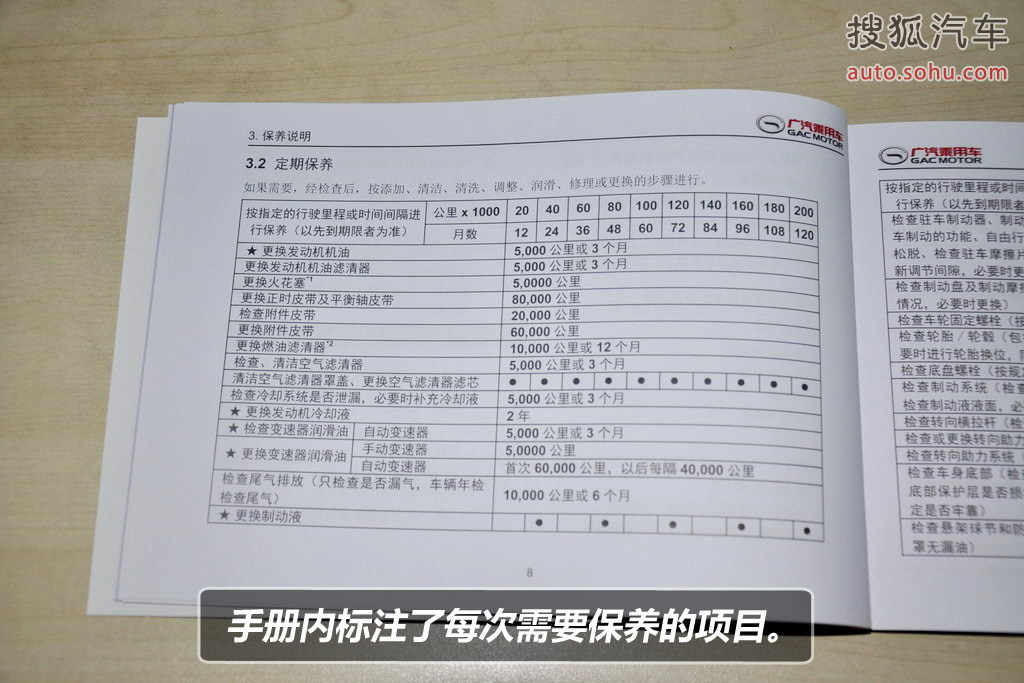 搜狐汽车
auto.sohu.com
3. 保养说明
广汽乘用车
GAC MOTOR
3.2 定期保养
如果需要，经检查后，按添加、清洁、清洗、调整、润滑、修理或更换的步骤进行。
按指定的行驶里程或时间间隔进行保养（以先到期限者为准） 公里 x 1000 20 40 60 80 100 120 140 160 180 200
月数 12 24 36 48 60 72 84 96 108 120
★ 更换发动机机油 5,000 公里或 3 个月
更换发动机机油滤清器 5,000 公里或 3 个月
更换火花塞*1 5,0000 公里
更换正时皮带及平衡轴皮带 80,000 公里
检查附件皮带 20,000 公里
更换附件皮带 60,000 公里
更换燃油滤清器*2 10,000 公里或 12 个月
检查、清洁空气滤清器 5,000 公里或 3 个月
清洁空气滤清器罩盖、更换空气滤清器滤芯 ● ● ● ● ● ● ● ● ● ●
检查冷却系统是否泄漏，必要时补充冷却液 5,000 公里或 3 个月
★ 更换发动机冷却液 2 年
★ 检查变速器润滑油 自动变速器 5,000 公里或 3 个月
★ 更换变速器润滑油 手动变速器 5,0000 公里
自动变速器 首次 60,000 公里，以后每隔 40,000 公里
检查尾气排放（只检查是否漏气，车辆年检检查尾气） 10,000 公里或 6 个月
★ 更换制动液 ● ● ● ● ●
8
广汽乘用车
GAC MOTOR
按指定的行驶里程或时间
行保养（以先到期限者
检查驻车制动器、制动
车制动的功能、自由行
松脱、检查驻车摩擦片
新调节间隙，必要时更
检查制动盘及制动摩擦
情况，必要时更换）
检查车轮固定螺栓（按
检查轮胎/轮毂（包
要时进行轮胎换位，
检查底盘螺栓（按规
检查制动系统（检查
检查制动液液面，必
检查转向横拉杆（检
检查或更换转向助力
检查转向助力系统（
检查车身底部（检
底部保护层是否损
定是否牢靠）
检查悬架球节和防
罩无漏油）
手册内标注了每次需要保养的项目。